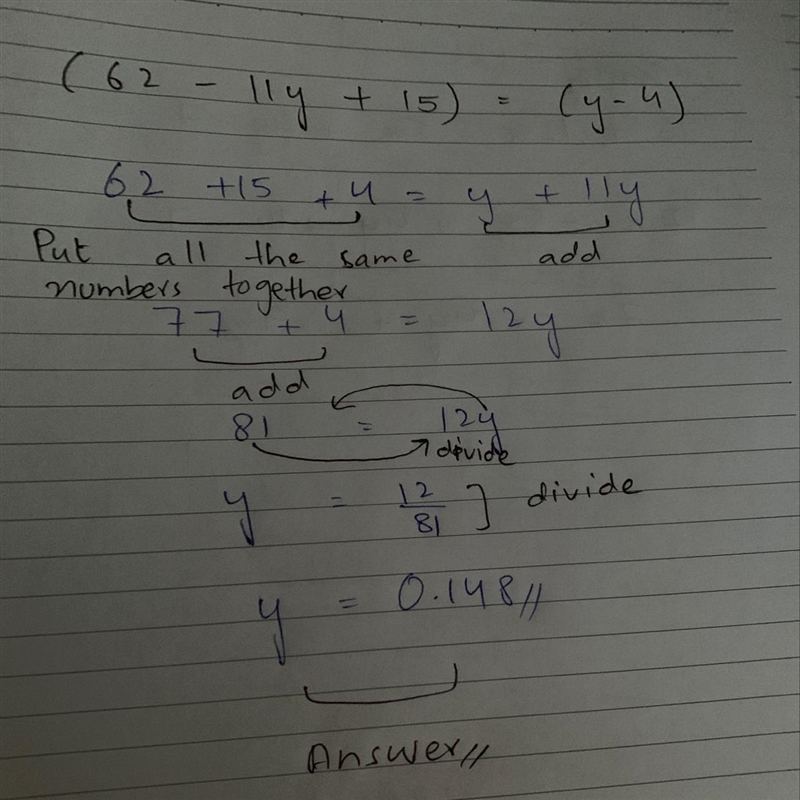 (62 - 11y + 15) = (y-4)
62 +15 +4 = y + 11y
Put all the same add
numbers together
77 + 4 = 12y
add
81 = 12y
divide
y = 12/81 ] divide
y = 0.148//
Answer//